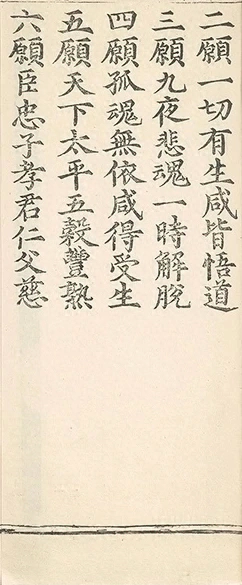 二願一切有生咸皆悟道
三願九夜悲魂一時解脫
四願孤魂無依咸得受生
五願天下太平五穀豐熟
六願臣忠子孝君仁父慈